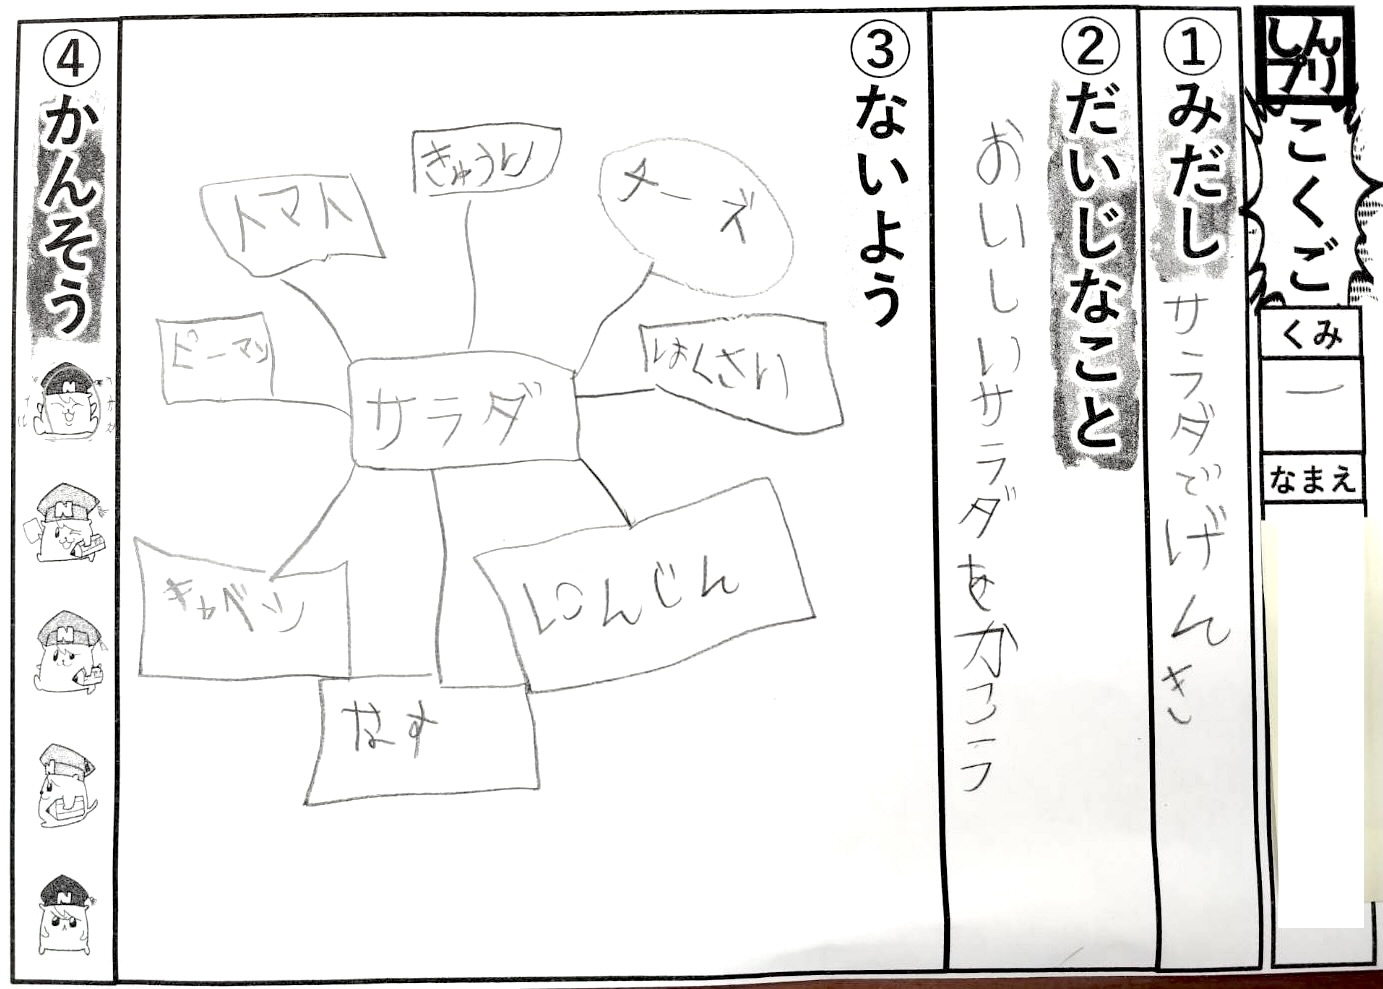 しんプリ
こくご
くみ
一
なまえ
①みだし サラダでげんき
②だいじなこと
おいしいサラダをかこう
③ないよう
チーズ
きゅうり
トマト
はくさい
ピーマン
サラダ
にんじん
キャベツ
なす
④かんそう
N
N
N
N
N